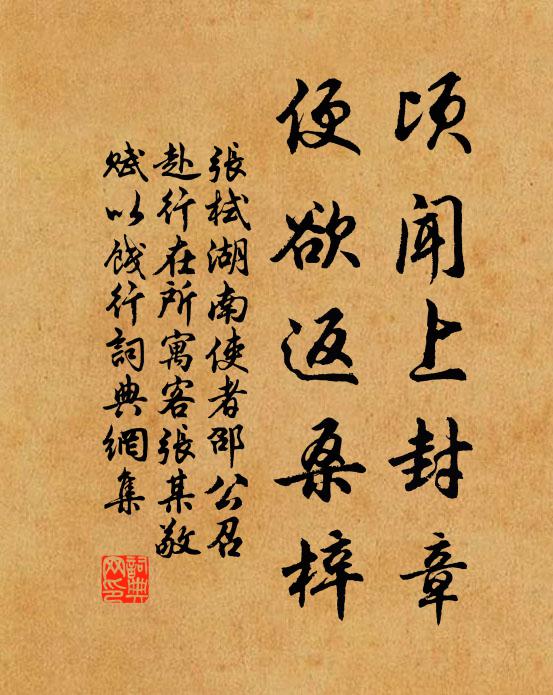 頃聞上封章
便欲返桑梓
張栻湖南使者邵公召
赴行在所寓客張某敬
賦以餞行詞典網集
詞典网印